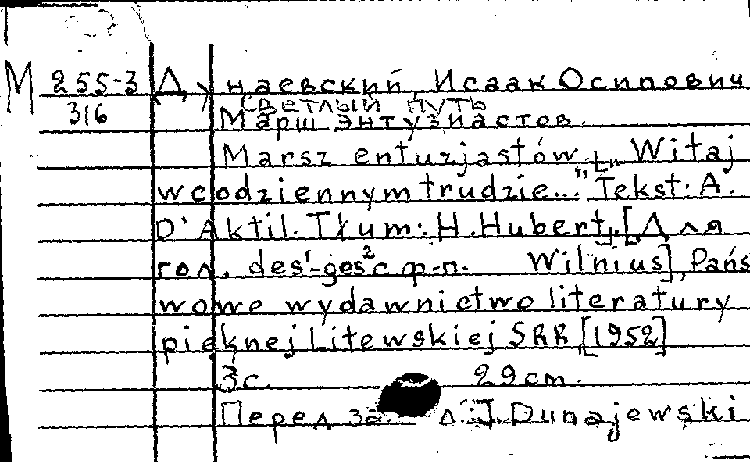 М 255-3 Дунаевский, Исаак Осипович
316 Светлый путь
Марш энтузиастов.
Marsz entuzjastów „Witaj
w codziennym trudzie..." Tekst: A.
D'Aktil. Tłum: H. Hubert, [Для
гол. des¹-ges² с ф-п. Wilnius], Pańs
wowe wydawnictwo literatury
pięknej Litewskiej SRR [1952]
3с. 29cm.
Перед J. Dunajewski